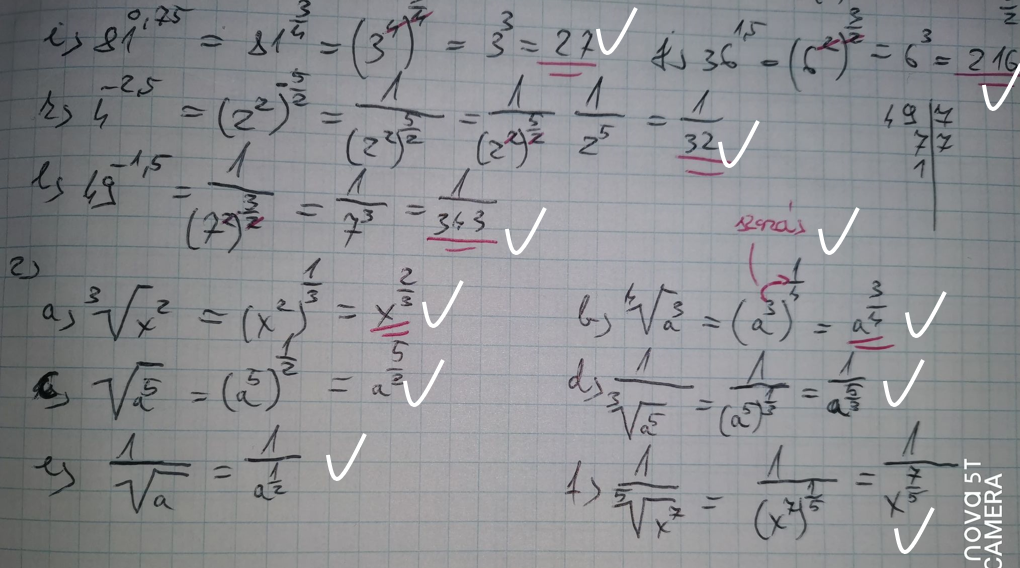 i) 81^0,75 = 81^(3/4) = (3^4)^(3/4) = 3^3 = 27 ✓
j) 36^1,5 = (6^2)^(3/2) = 6^3 = 216 ✓
k) 4^-2,5 = (2^2)^(-5/2) = 1/(2^2)^(5/2) = 1/(2^2)^(5/2) 1/2^5 = 1/32 ✓
49 | 7
7 | 7
1 |
l) 49^-1,5 = 1/(7^2)^(3/2) = 1/7^3 = 1/343 ✓
szorzás ✓
2)
a) ∛(x^2) = (x^2)^(1/3) = x^(2/3) ✓
b) ∜(a^3) = (a^3)^(1/4) = a^(3/4) ✓
c) √(a^5) = (a^5)^(1/2) = a^(5/2) ✓
d) 1/∛(a^5) = 1/(a^5)^(1/3) = 1/a^(5/3) ✓
e) 1/√a = 1/a^(1/2) ✓
f) 1/⁵√(x^7) = 1/(x^7)^(1/5) = 1/x^(7/5) ✓
nova 5T
CAMERA